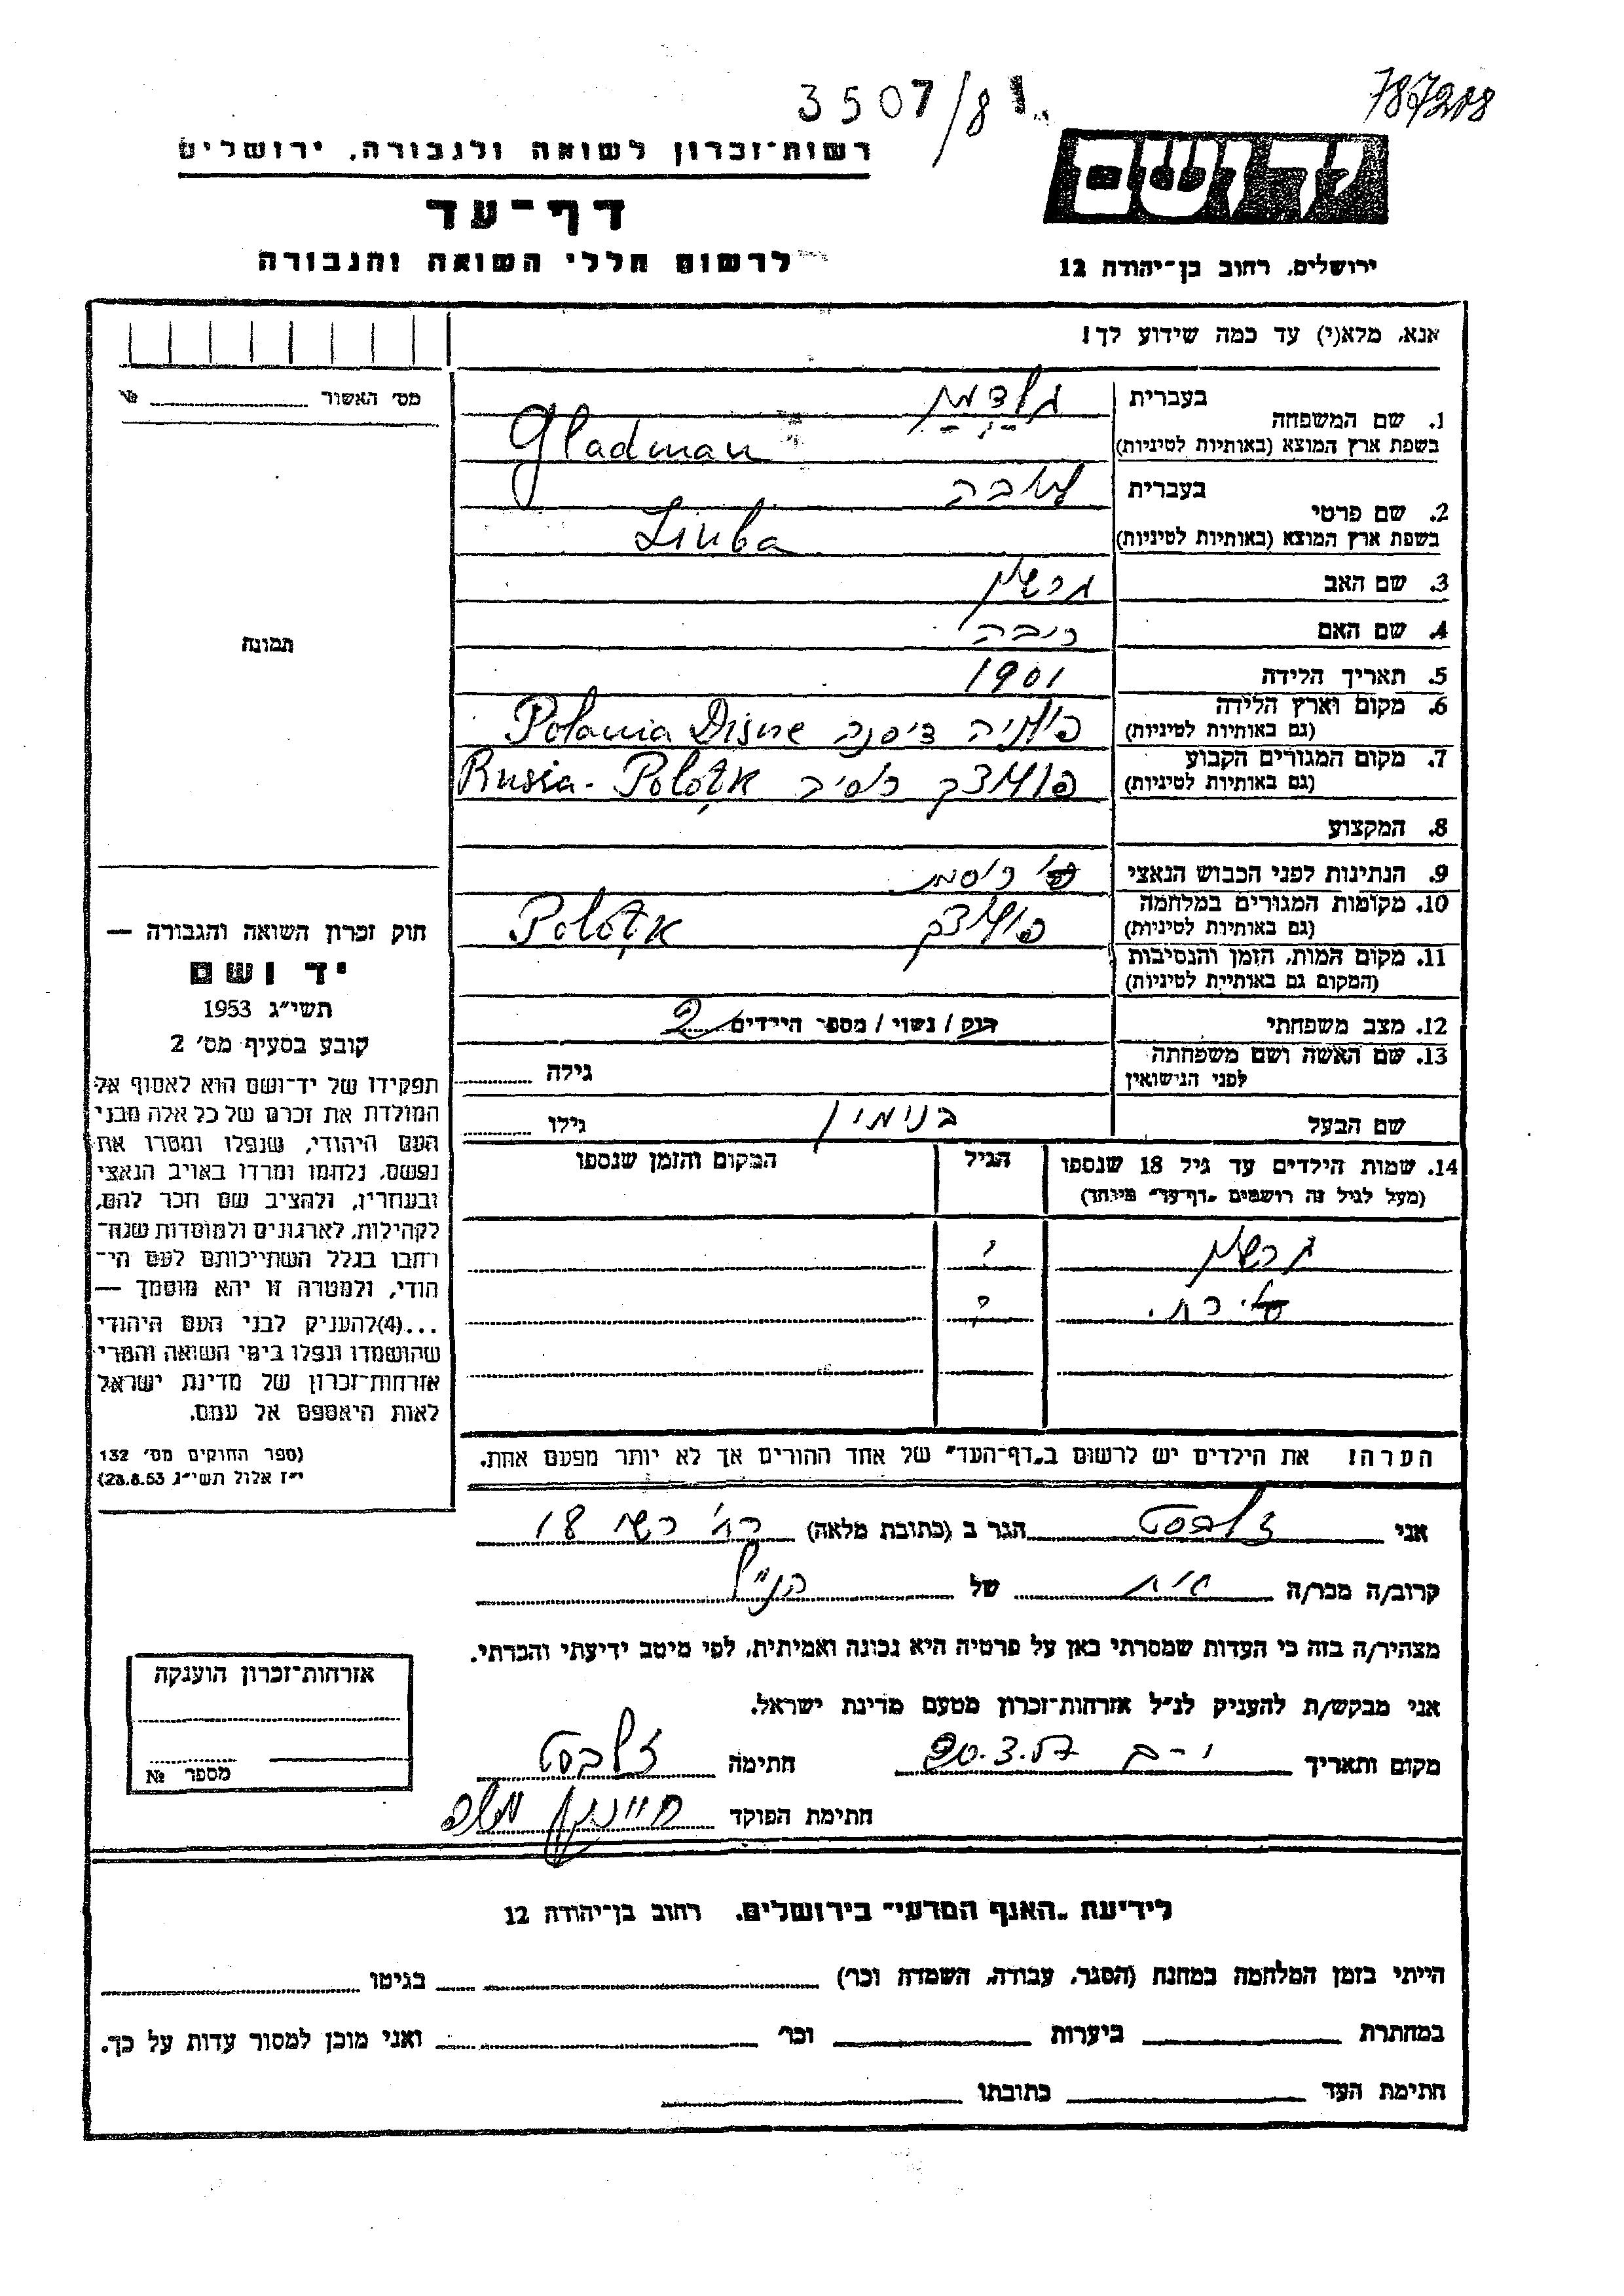 3507/81
787208
רשות־זכרון לשואה ולגבורה, ירושלים
דף־עד
לרשום חללי השואה והגבורה
יד ושם
ירושלים, רחוב בן־יהודה 12
אנא, מלא(י) עד כמה שידוע לך!
מס׳ האשור № 
1. שם המשפחה
בעברית
גלדמן
בשפת ארץ המוצא (באותיות לטיניות)
Gladman
2. שם פרטי
בעברית
ליובה
בשפת ארץ המוצא (באותיות לטיניות)
Liuba
3. שם האב גרשון
4. שם האם ריבה
5. תאריך הלידה 1901
6. מקום וארץ הלידה (גם באותיות לטיניות) פולניה דיסנה Polania Disne
7. מקום המגורים הקבוע (גם באותיות לטיניות) פולוצק רוסיה Rusia - Polotzk
8. המקצוע
9. הנתינות לפני הכבוש הנאצי רוסית
10. מקומות המגורים במלחמה (גם באותיות לטיניות) פולוצק Polotzk
11. מקום המות, הזמן והנסיבות (המקום גם באותיות לטיניות)
12. מצב משפחתי רוק / נשוי / מספר הילדים 2
13. שם האשה ושם משפחתה לפני הנישואין גילה
שם הבעל בנימין גילו
14. שמות הילדים עד גיל 18 שנספו
(מעל לגיל זה רושמים „דף־עד״ מיוחד)
הגיל
המקום והזמן שנספו
גרשון
הערה: את הילדים יש לרשום ב„דף־העד״ של אחד ההורים אך לא יותר מפעם אחת.
תמונה
חוק זכרון השואה והגבורה —
יד ושם
תשי״ג 1953
קובע בסעיף מס׳ 2
תפקידו של יד־ושם הוא לאסוף אל
המולדת את זכרם של כל אלה מבני
העם היהודי, שנפלו ומסרו את
נפשם, נלחמו ומרדו באויב הנאצי
ובעוזריו, ולהציב שם וזכר להם,
לקהילות, לארגונים ולמוסדות שנח־
רבו בגלל השתייכותם לעם הי־
הודי, ולמטרה זו יהא מוסמך —
...(4) להעניק לבני העם היהודי
שהושמדו ונפלו בימי השואה והמרי
אזרחות־זכרון של מדינת ישראל
לאות היאספם אל עמם.
(ספר החוקים מס׳ 132
י״ז אלול תשי״ג 28.8.53)
אני זילברסט הגר ב (כתובת מלאה) רח׳ רש״י 18
קרוב/ה מכר/ה של הנ״ל
מצהיר/ה בזה כי העדות שמסרתי כאן על פרטיה היא נכונה ואמיתית, לפי מיטב ידיעתי והכרתי.
אני מבקש/ת להעניק לנ״ל אזרחות־זכרון מטעם מדינת ישראל.
מקום ותאריך י־ם 20.3.57 חתימה
חתימת הפוקד
אזרחות־זכרון הוענקה
מספר №
לידיעת „האגף המדעי״ בירושלים, רחוב בן־יהודה 12
הייתי בזמן המלחמה במחנה (הסגר, עבודה, השמדה וכו׳) בגיטו
במחתרת ביערות וכו׳ ואני מוכן למסור עדות על כך.
חתימת העד כתובתו